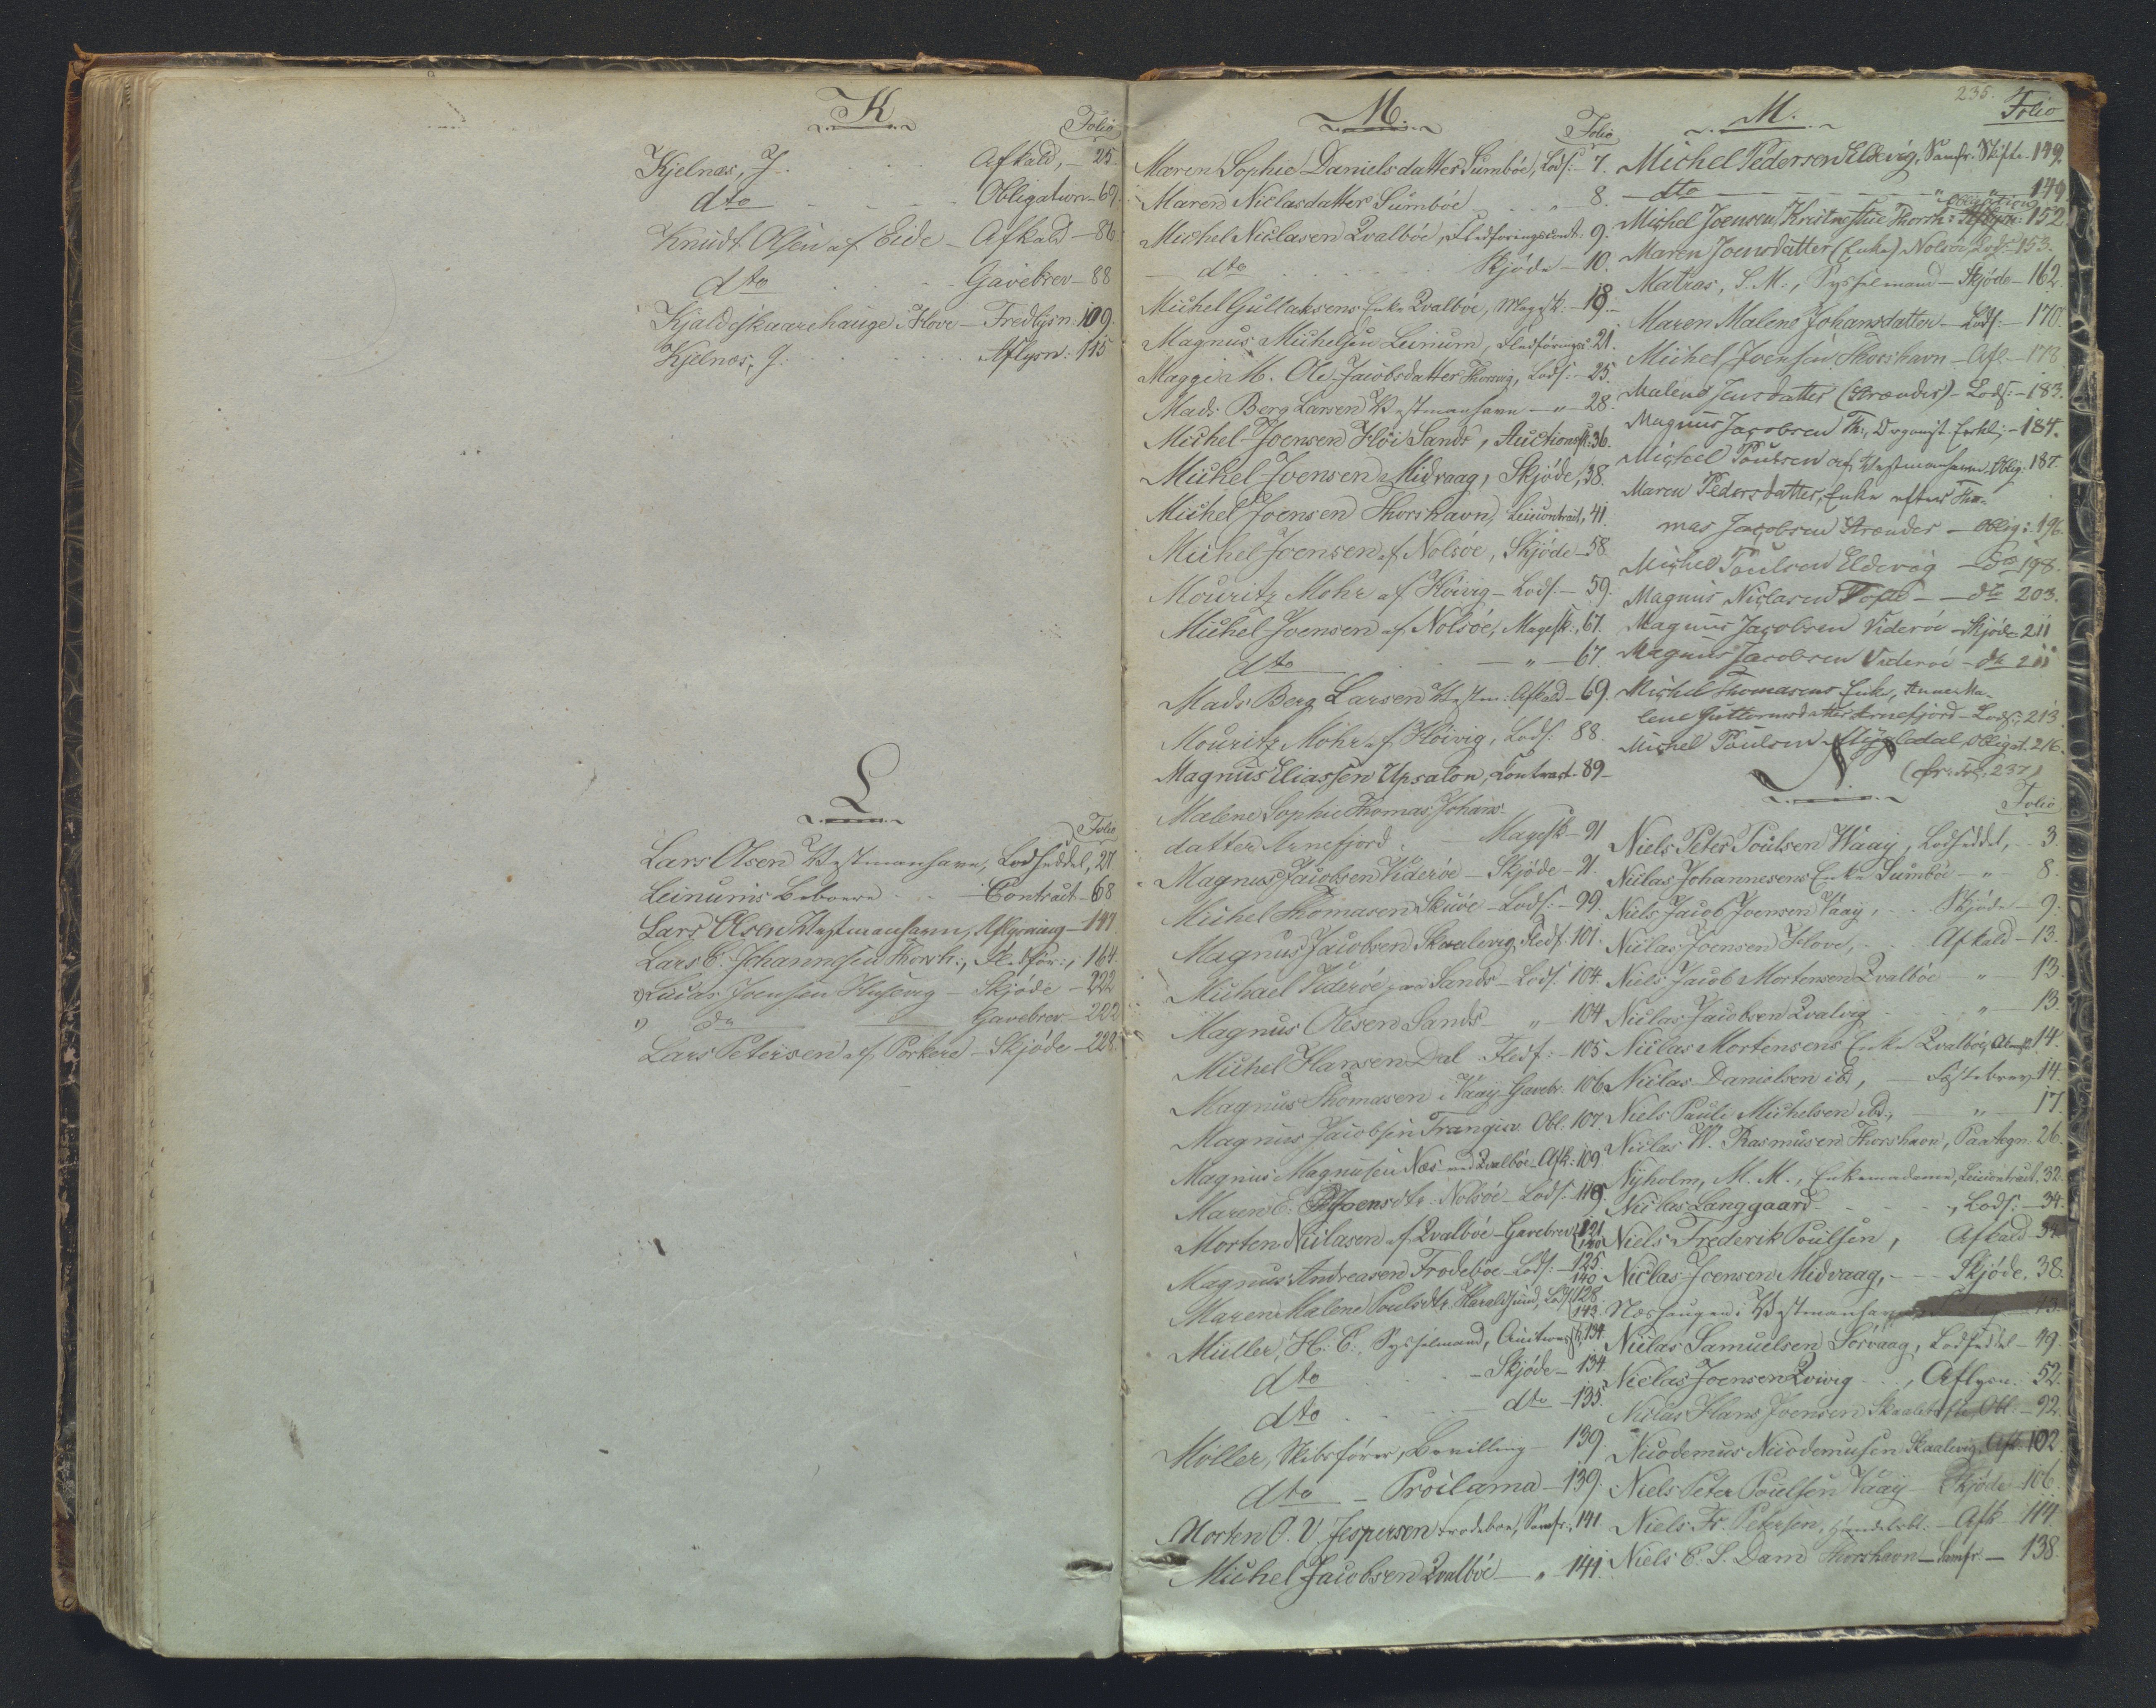 K
Folio
Kjelnæs, J. Afkald, - 25.
dto Obligation - 69.
Knudt Olsen af Eide - Afkald - 86
dto Gavebrev - 88
i Hove - Fredlysn. 109.
Kjelnæs, J. Aflysn: 145
L
Folio
Lars Olsen Westmanhavn, Lodseddel, 27
Leinums Beboere Contract - 68
Lars Olsen Westmanhavn, Aflysning - 147
Lars C. Johannesen Thorsh:, 164.
Lucas Joensen Husevig - Skjöde - 222
" do Gavebrev - 222
Lars Petersen af Porkere - Skjöde - 228.
M.
Folio
Maren Sophie Danielsdatter Sumböe, Lods. - 7.
Maren Niclasdatter Sumböe " 8.
Michel Niclasen Qvalböe, Fledföringscont. 9.
dto Skjöde - 10.
Michel Gullaksens Enke Qvalböe, Magesk. - 18.
Magnus Michelsen Leinum, 21.
Maggie M. Ole Jacobsdatter Thorsvig, Lods. - 25.
Mads Berg Larsen Westmanhavn - " - 28.
Michel Joensen Höi Sands, Auctionssk. 36.
Michel Joensen Midvaag, Skjöde, 38.
Michel Joensen Thorshavn, Leiecontract, 41.
Michel Joensen af Nolsöe, Skjöde - 58.
Mouritz Mohr af Höivig - Lods. - 59.
Michel Joensen af Nolsöe, Magesk., 67.
dto - " - 67.
Mads Berg Larsen Westm. Afkald - 69.
Mouritz Mohr af Höivig, Lods. 88.
Magnus Eliassen Upsalon, Contract - 89 -
Malene Sophie Thomas Johans-
datter Arnefjord. Magesk - 91
Magnus Jacobsen Viderøe - Skjöde - 91.
Michel Thomasen Skuöe - Lods. - 99.
Magnus Jacobsen Skaalevig, Fledf. 101.
Michael Videröe paa Sands - Lods. 104.
Magnus Olesen Sands " - 104
Michel Hansen Dal Fledf. - 105
Magnus Thomasen i Vaay Gavebr. 106.
Magnus Jacobsen Trangisv. Obl. 107.
Magnus Magnusen Næs ved Qvalböe - Afk. 109
Maren E. Joensdtr. Nolsöe - Lods. - 119.
Morten Niclasen af Qvalböe - Gavebrev 121
140
Magnus Andreasen Frodeböe - Lods. - 125.
140
Maren Malene Poulsdtr. Haraldsund, Lods. 128.
143.
Müller, H. C., Sysselmand, Auctionssk. 134.
dto - Skjöde - 134.
dto dto - 135.
Möller, Skibsförer, Bevilling - 139.
dto - Proclama - 139.
Morten O. V. Jespersen Frodeboe, Samfr., 141
Michel Jacobsen Qvalböe - " - 141.
235.
M.
Folio
Michel Pedersen Eldevig, Samfr. Skifte. 149.
dto " " 149
Obligation
Michel Joensen, Thorsh: 152
Maren Joensdatter (Enke) Nolsöe Lods: 153.
Matras, S. M., Sysselmand - Skjöde - 162.
Maren Malene Johansdatter - Lods. - 170.
Michel Joensen Thorshavn - Afl. - 178.
Malene Jensdatter (Strænder) - Lods: - 183.
Magnus Jacobsen Th., Organist Erkl; - 184.
Michel Poulsen af Westmanhavn, Oblig: 187.
Maren Pedersdatter, Enke efter Tho-
mas Jacobsen Strænder - Oblig: - 196.
Michel Poulsen Eldevig - Do 198.
Magnus Niclasen Toft - - dto 203.
Magnus Jacobsen Videröe - Skjöde 211
Magnus Jacobsen Videröe - do 211
Michel Thomasens Enke, Anne Ma-
lene Guttormsdatter Arnefjord - Lods., 213.
Michel Poulsen Obligat. 216.
(fr: Fol. 237)
N.
Folio
Niels Peter Poulsen Waay, Lodseddel, - 3.
Niclas Johannesens Enke Sumböe - " - 8.
Niels Jacob Joensen Vaay, Skjöde - 9.
Niclas Joensen Hove, - Afkald - 13.
Niels Jacob Mortensen Qvalböe " - 13.
Niclas Jacobsen Qvalvig " - 13.
Niclas Mortensens Enke Qvalböe, 14.
Niclas Danielsen ibd, - Fæstebrev 14.
Niels Pauli Michelsen ibd., - " - 17.
Niclas W. Rasmusen Thorshavn, Paategn. 26.
Nyholm, M. M., Enkemadame, Leiecontract. 32.
Niclas Langgaard - - - -, Lods: - 34.
Niels Frederik Poulsen, Afkald - 34
Niclas Joensen Midvaag, - - Skjöde. 38.
Næshaugen i Westmanhavn 43.
Niclas Samuelsen Sörvaag, Lodseddel - 49.
Niclas Joensen Qvivig -, Aflysn. 52.
Niclas Hans Joensen Obl. - 92.
Nicodemus Nicodemusen Skaalevig, Afk 102.
Niels Peter Poulsen Vaay Skjöde - 106.
Niels Fr. Petersen, Handelsbt. - Afk - 114.
Niels C. S. Dam Thorshavn - Samfr. - 138.